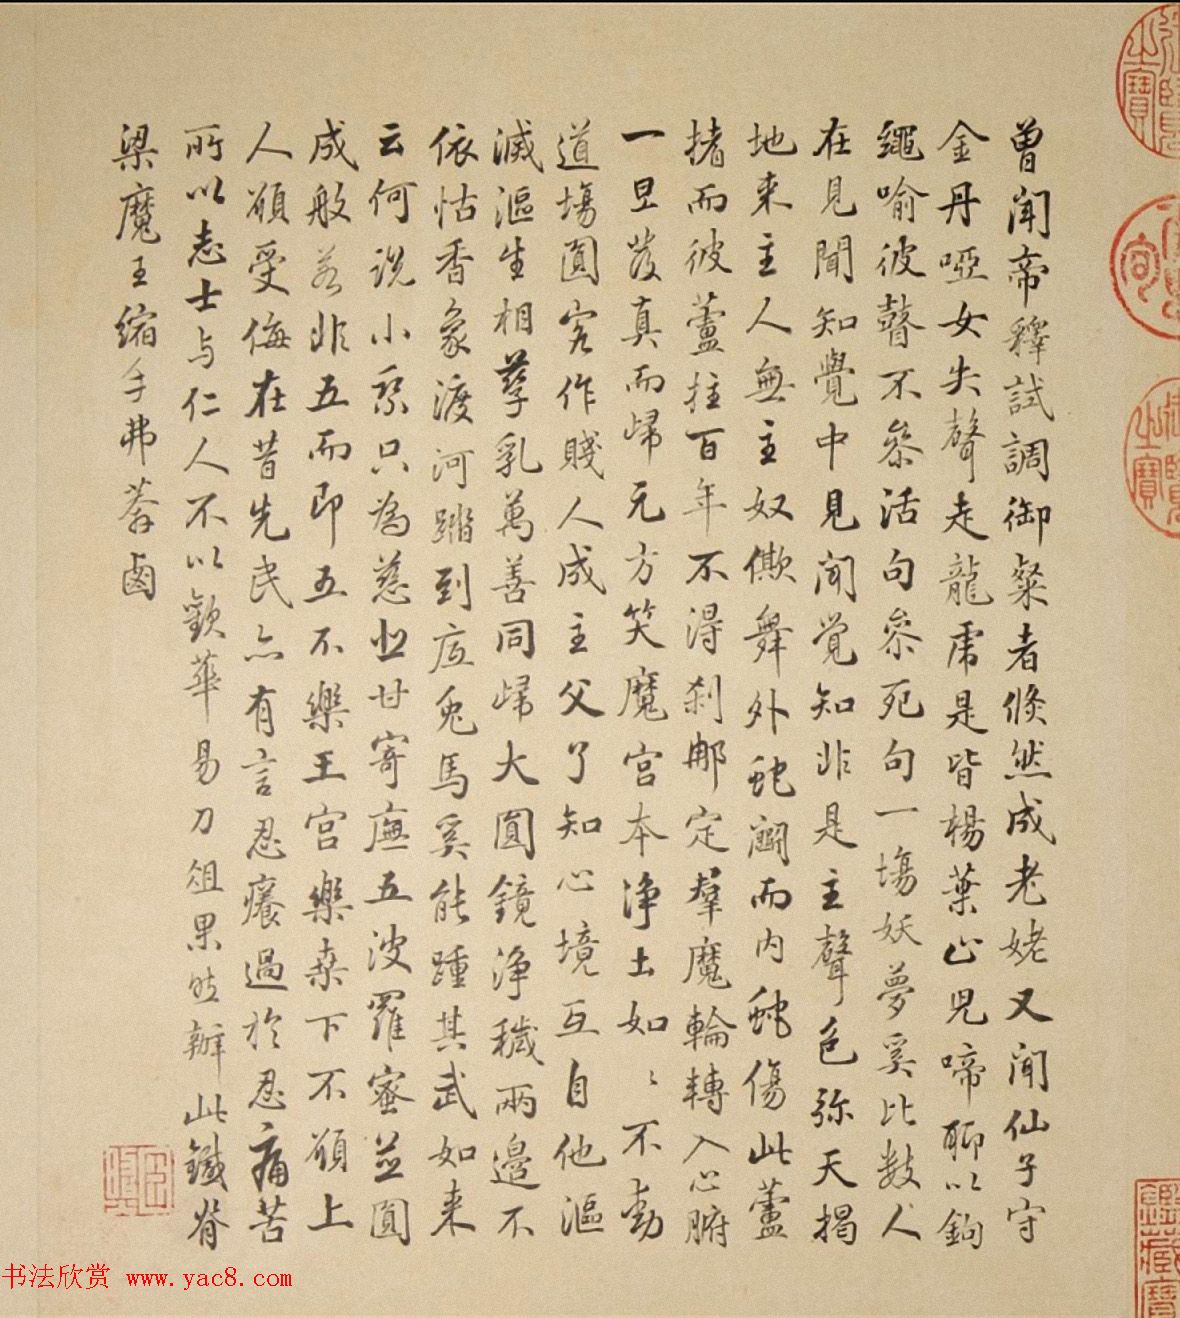 曾聞帝釋試調御粲者倏然成老姥又聞仙子守
金丹啞女失聲走龍虎是皆楊葉止兒啼聊以鉤
繩喻彼瞽不參活句參死句一塲妖夢奚比數人
在見聞知覺中見聞覺知非是主聲色弥天揭
地来主人無主奴僛舞外蛇鬭而内蛇傷此蘆
揞而彼蘆拄百年不得剎那定羣魔輪轉入心腑
一旦發真而歸元方笑魔宫本浄土如〻不動
道塲圓客作賤人成主父了知心境互自他漚
滅漚生相孳乳萬善同歸大圓鏡浄穢兩邊不
依怙香象渡河蹋到底兔馬奚能踵其武如来
云何説小乘只為慈悲甘寄廡五波羅蜜並圓
成般若非五而即五不樂王宫樂桑下不願上
人願受侮在昔先民亦有言忍癢過於忍痛苦
所以志士与仁人不以歡華易刀俎果能辦此鐵脊
梁魔王縮手弗莽鹵
之寶
鑑藏寶
书法欣赏 www.yac8.com